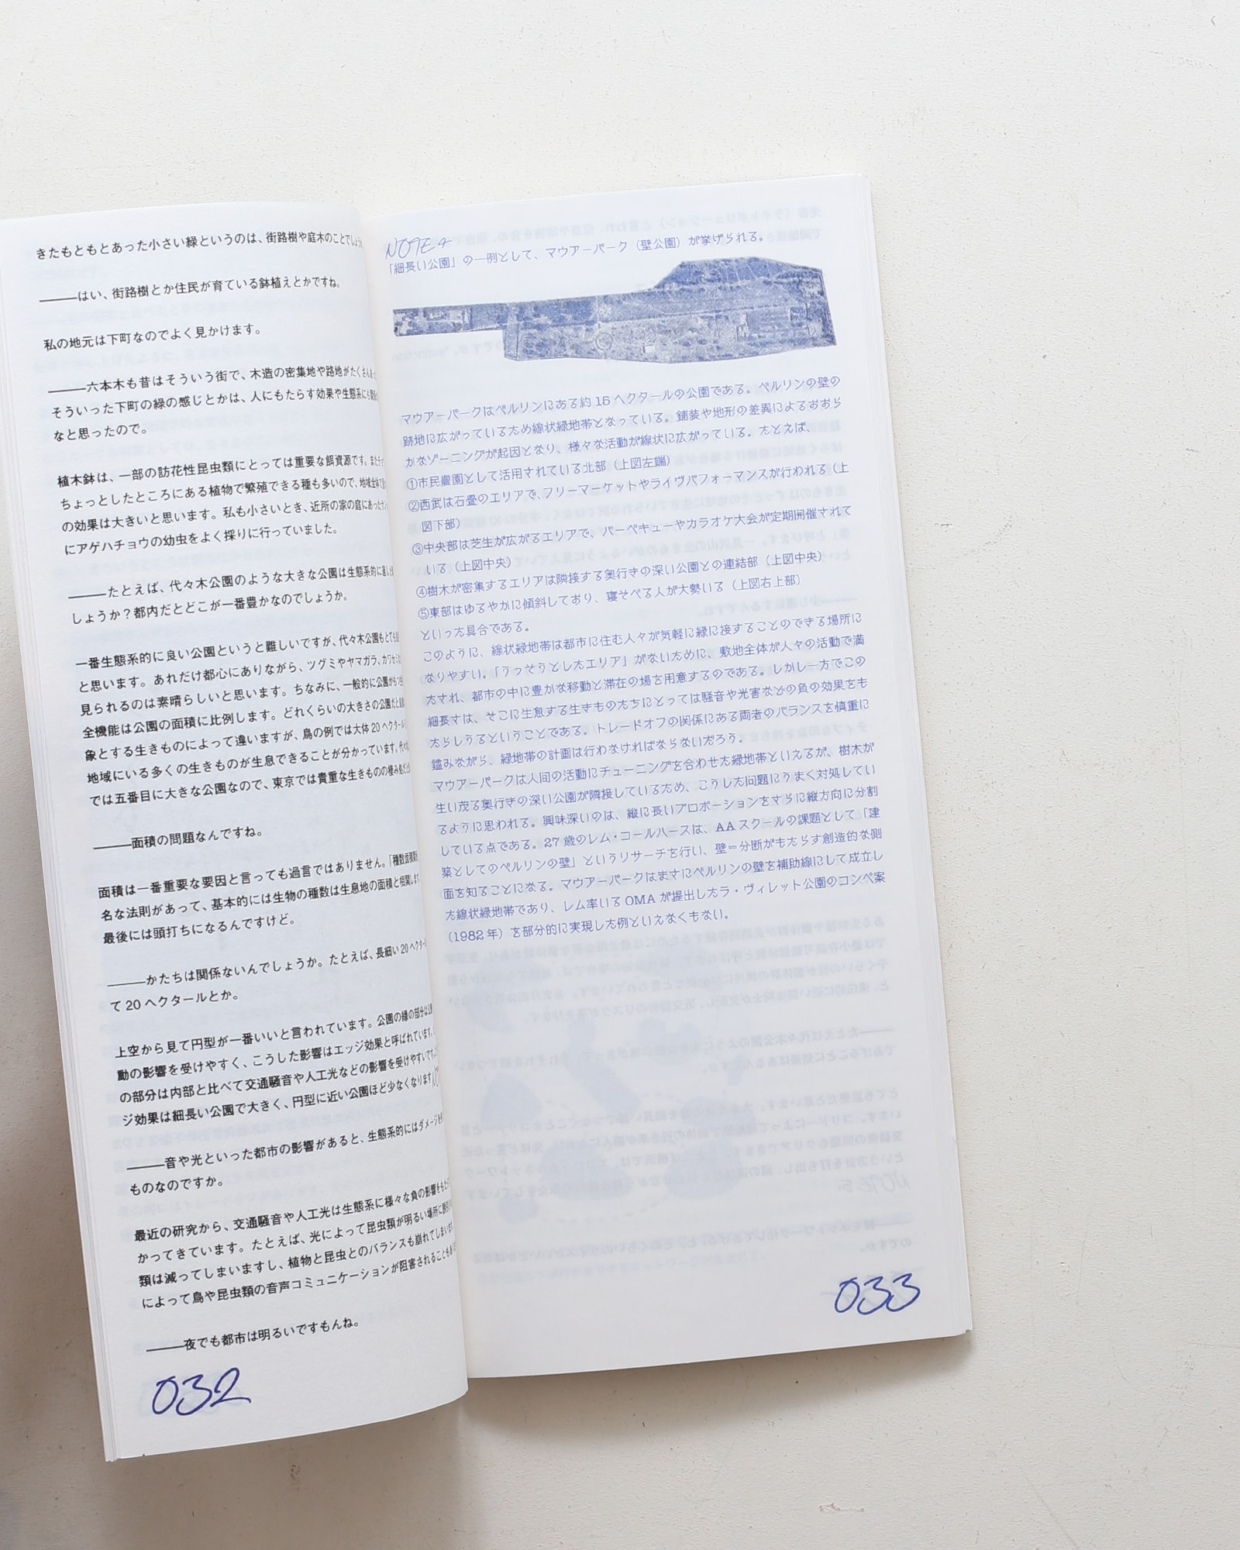 きたもともとあった小さい緑というのは、街路樹や庭木のことでしょう
———はい、街路樹とか住民が育ている鉢植えとかですね。
私の地元は下町なのでよく見かけます。
———六本木も昔はそういう街で、木造の密集地や路地がたくさんあっ
そういった下町の緑の感じとかは、人にもたらす効果や生態系にも
なと思ったので。
植木鉢は、一部の訪花性昆虫類にとっては重要な餌資源です。また
ちょっとしたところにある植物で繁殖できる種も多いので、地域全体
の効果は大きいと思います。私も小さいとき、近所の家の庭にあった
にアゲハチョウの幼虫をよく採りに行っていました。
———たとえば、代々木公園のような大きな公園は生態系的に
しょうか？都内だとどこが一番豊かなのでしょうか。
一番生態系的に良い公園というと難しいですが、代々木公園もとても
と思います。あれだけ都心にありながら、ツグミやヤマガラ、カワセミ
見られるのは素晴らしいと思います。ちなみに、一般的に公園が
全機能は公園の面積に比例します。どれくらいの大きさの公園だと
象とする生きものによって違いますが、鳥の例では大体20ヘクタール
地域にいる多くの生きものが生息できることが分かっています。
では五番目に大きな公園なので、東京では貴重な生きものの棲み
———面積の問題なんですね。
面積は一番重要な要因と言っても過言ではありません。「種数面積
名な法則があって、基本的には生物の種数は生息地の面積と相関しま
最後には頭打ちになるんですけど。
———かたちは関係ないんでしょうか。たとえば、長細い20ヘクター
て20ヘクタールとか。
上空から見て円型が一番いいと言われています。公園の縁の部分は
動の影響を受けやすく、こうした影響はエッジ効果と呼ばれています。
の部分は内部と比べて交通騒音や人工光などの影響を受けやすいで
ジ効果は細長い公園で大きく、円型に近い公園ほど少なくなります
———音や光といった都市の影響があると、生態系的にはダメージを
ものなのですか。
最近の研究から、交通騒音や人工光は生態系に様々な負の影響をもた
かってきています。たとえば、光によって昆虫類が明るい場所に
類は減ってしまいますし、植物と昆虫とのバランスも崩れてしまいま
によって鳥や昆虫類の音声コミュニケーションが阻害されることも
———夜でも都市は明るいですもんね。
032
NOTE 4
「細長い公園」の一例として、マウアーパーク（壁公園）が挙げられる。
マウアーパークはベルリンにある約15ヘクタールの公園である。ベルリンの壁の
跡地に広がっているため線状緑地帯となっている。舗装や地形の差異によるおおら
かなゾーニングが起因となり、様々な活動が線状に広がっている。たとえば、
①市民農園として活用されている北部（上図左端）
②西武は石畳のエリアで、フリーマーケットやライヴパフォーマンスが行われる（上
図下部）
③中央部は芝生が広がるエリアで、バーベキューやカラオケ大会が定期開催されて
いる（上図中央）
④樹木が密集するエリアは隣接する奥行きの深い公園との連結部（上図中央）
⑤東部はゆるやかに傾斜しており、寝そべる人が大勢いる（上図右上部）
といった具合である。
このように、線状緑地帯は都市に住む人々が気軽に緑に接することのできる場所に
なりやすい。「うっそうとしたエリア」がないために、敷地全体が人々の活動で満
たされ、都市の中に豊かな移動と滞在の場を用意するのである。しかし一方でこの
細長さは、そこに生息する生きものたちにとっては騒音や光害などの負の効果をも
たらしうるということである。トレードオフの関係にある両者のバランスを慎重に
鑑みながら、緑地帯の計画は行わなければならないだろう。
マウアーパークは人間の活動にチューニングを合わせた緑地帯といえるが、樹木が
生い茂る奥行きの深い公園が隣接しているため、こうした問題にうまく対処してい
るように思われる。興味深いのは、縦に長いプロポーションをさらに縦方向に分割
している点である。27歳のレム・コールハースは、AAスクールの課題として「建
築としてのベルリンの壁」というリサーチを行い、壁＝分断がもたらす創造的な側
面を知ることになる。マウアーパークはまさにベルリンの壁を補助線にして成立し
た線状緑地帯であり、レム率いるOMAが提出したラ・ヴィレット公園のコンペ案
（1982年）を部分的に実現した例といえなくもない。
033